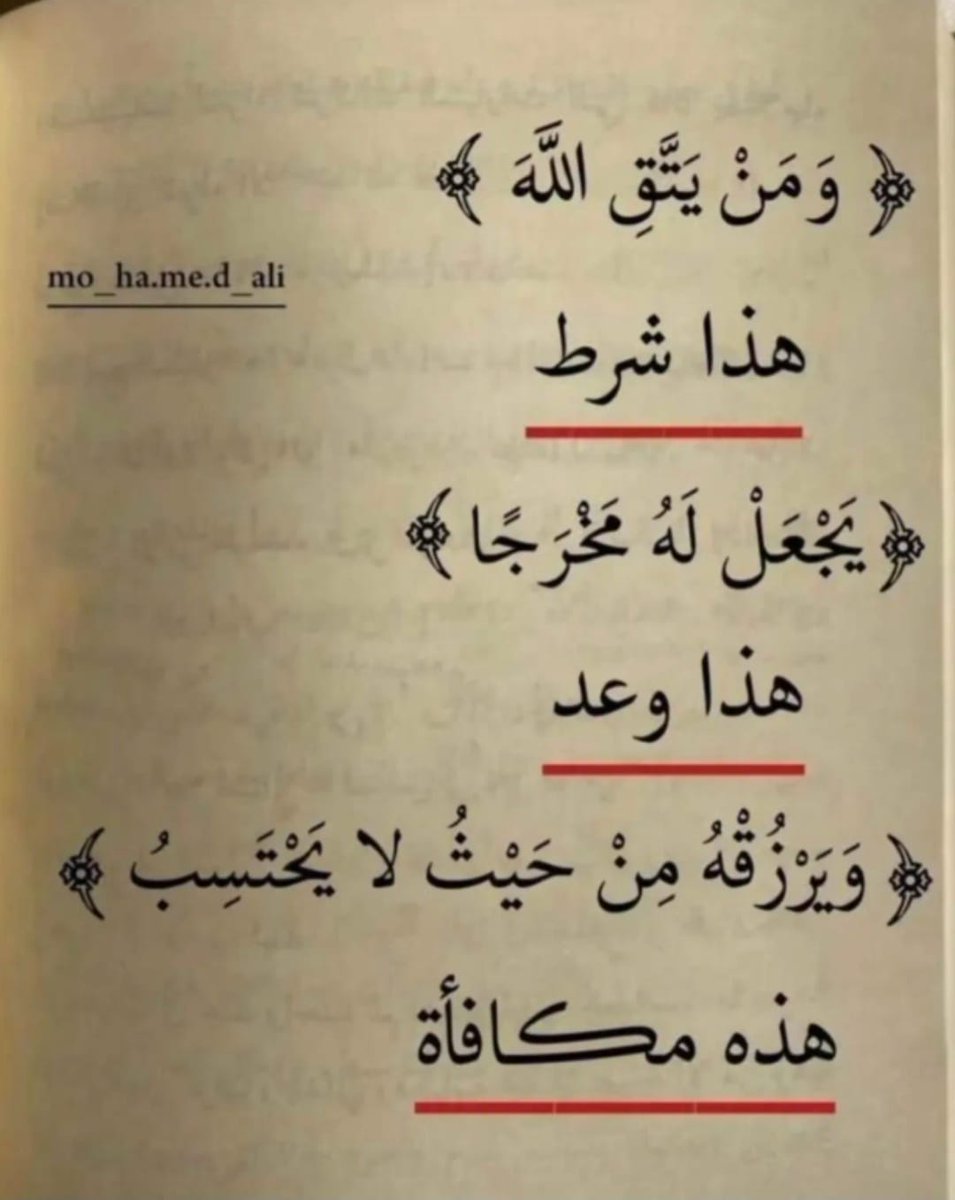 ﴿ وَمَنْ يَتَّقِ اللَّهَ ﴾
mo_ha.me.d_ali
هذا شرط
﴿ يَجْعَلْ لَهُ مَخْرَجًا ﴾
هذا وعد
﴿ وَيَرْزُقْهُ مِنْ حَيْثُ لا يَحْتَسِبُ ﴾
هذه مكافأة